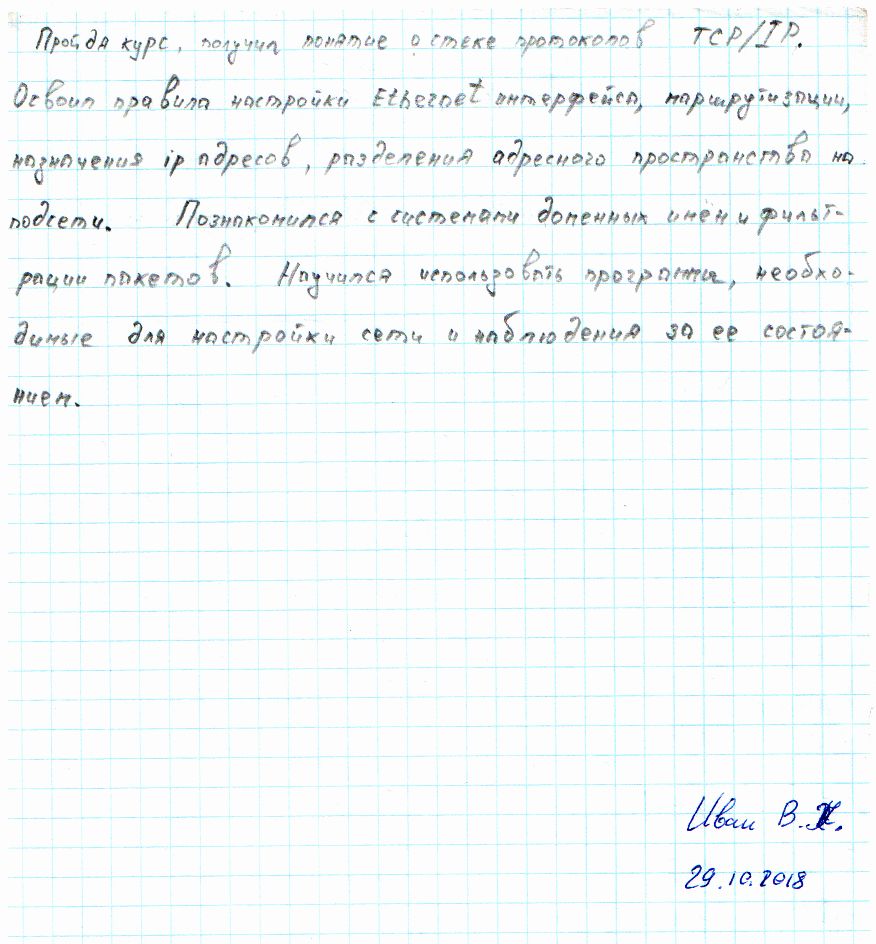 Пройдя курс, получил понятие о стеке протоколов TCP/IP.
Освоил правила настройки Ethernet интерфейса, маршрутизации,
назначения ip адресов, разделения адресного пространства на
подсети. Познакомился с системами доменных имён и фильт-
рации пакетов. Научился использовать программы, необхо-
димые для настройки сети и наблюдения за ее состоя-
нием.
Иван В.
29.10.2018